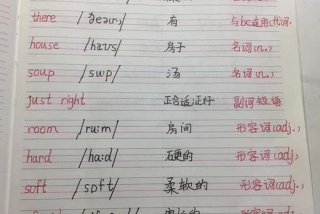 there /ðeər/ 有 与be连用(代词)
house /haʊs/ 房子 名词(n.)
soup /suːp/ 汤 名词(n.)
just right 正合适;正好 副词短语
room /ruːm/ 房间 形容词(adj.)
hard /hɑːd/ 硬的 形容词(adj.)
soft /sɒft/ 柔软的 形容词(adj.)